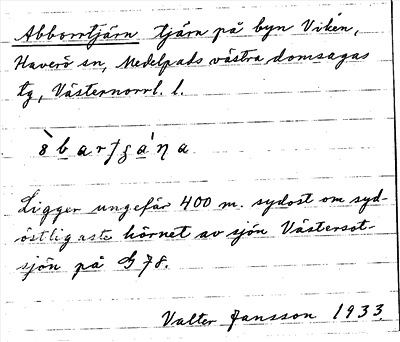 Abborrtjärn tjärn på byn Viken,
Haverö sn, Medelpads västra domsagas
tg, Västernorrl. l.
Ligger ungefär 400 m. sydost om syd-
östligaste hörnet av sjön Västersot-
sjön på G 78.
Valter Jansson 1933.